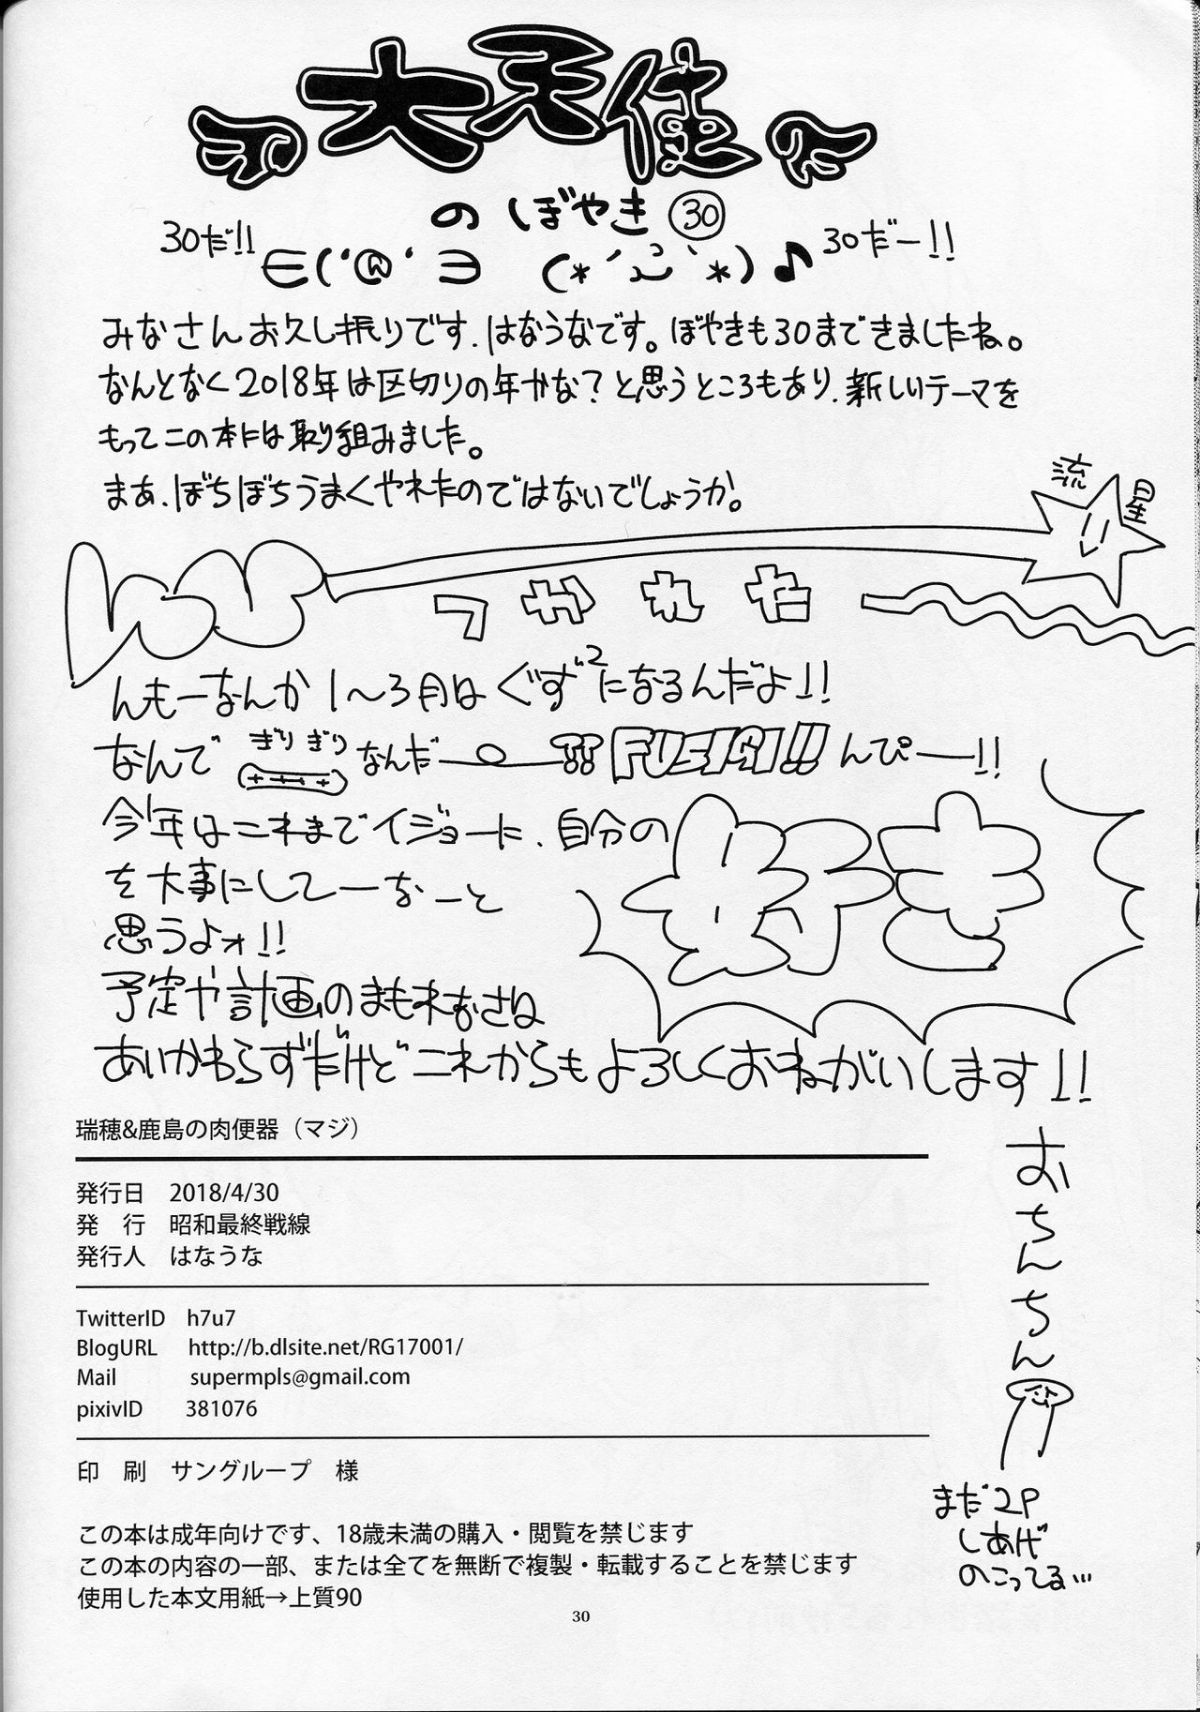 大天使
のぼやき㉚
30だ!!
30だー!!
みなさんお久し振りです、はなうなです。ぼやきも30まできましたね。
なんとなく2018年は区切りの年かな?と思うところもあり、新しいテーマを
もってこの本には取り組みました。
まあ、ぼちぼちうまくやれたのではないでしょうか。
流星
つかれた
んもーなんか1〜3月はぐず²になるんだよー!!
なんでぎりぎりなんだー FUSIGI!! んぴー!!
今年はこれまでイジョーに、自分の
好き
を大事にしてーなーと
思うよォ!!
予定や計画のまも
あいかわらずだけどこれからもよろしくおねがいします!!
おちんちん
まだ2P
しあげ
のこってる…
瑞穂&鹿島の肉便器(マジ)
発行日 2018/4/30
発 行 昭和最終戦線
発行人 はなうな
TwitterID h7u7
BlogURL http://b.dlsite.net/RG17001/
Mail supermpls@gmail.com
pixivID 381076
印 刷 サングループ 様
この本は成年向けです、18歳未満の購入・閲覧を禁じます
この本の内容の一部、または全てを無断で複製・転載することを禁じます
使用した本文用紙→上質90
30